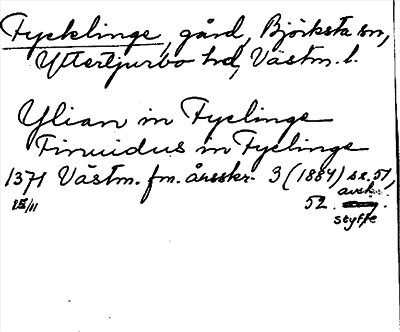 Fycklinge, gård, Björksta sn,
Yttertjurbo hd, Västm. l.
Ylian in Fyclinge
Finuidus in Fyclinge
1371 Västm. fm. årsskr. 3 (1884) s. 51,
avskr.
/11 52.
styffe